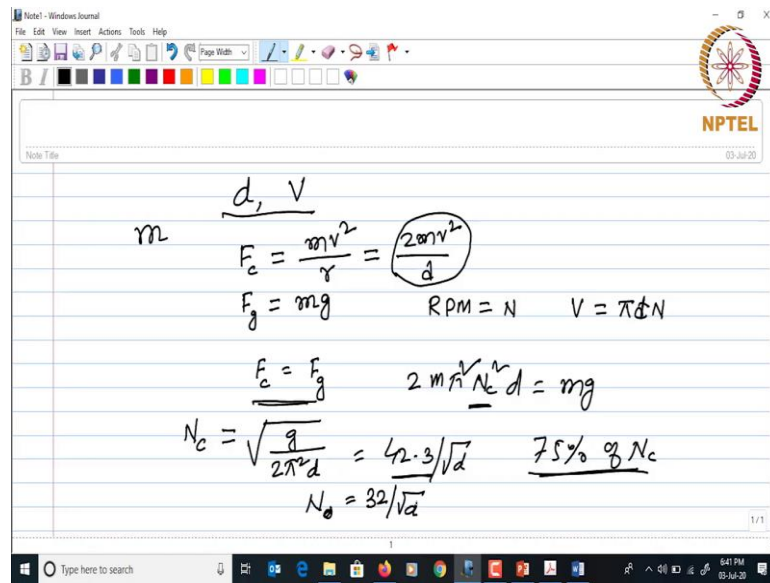 Note1 - Windows Journal
File Edit View Insert Actions Tools Help
Page Width
B I
NPTEL
Note Title
03-Jul-20
d, V
m
F_c = mv²/r = 2mv²/d
F_g = mg RPM = N V = πdN
F_c = F_g 2mπ²N_c²d = mg
N_c = √(g/2π²d) = 42.3/√d 75% of N_c
N_o = 32/√d
1/1
1
Type here to search
6:41 PM
03-Jul-20